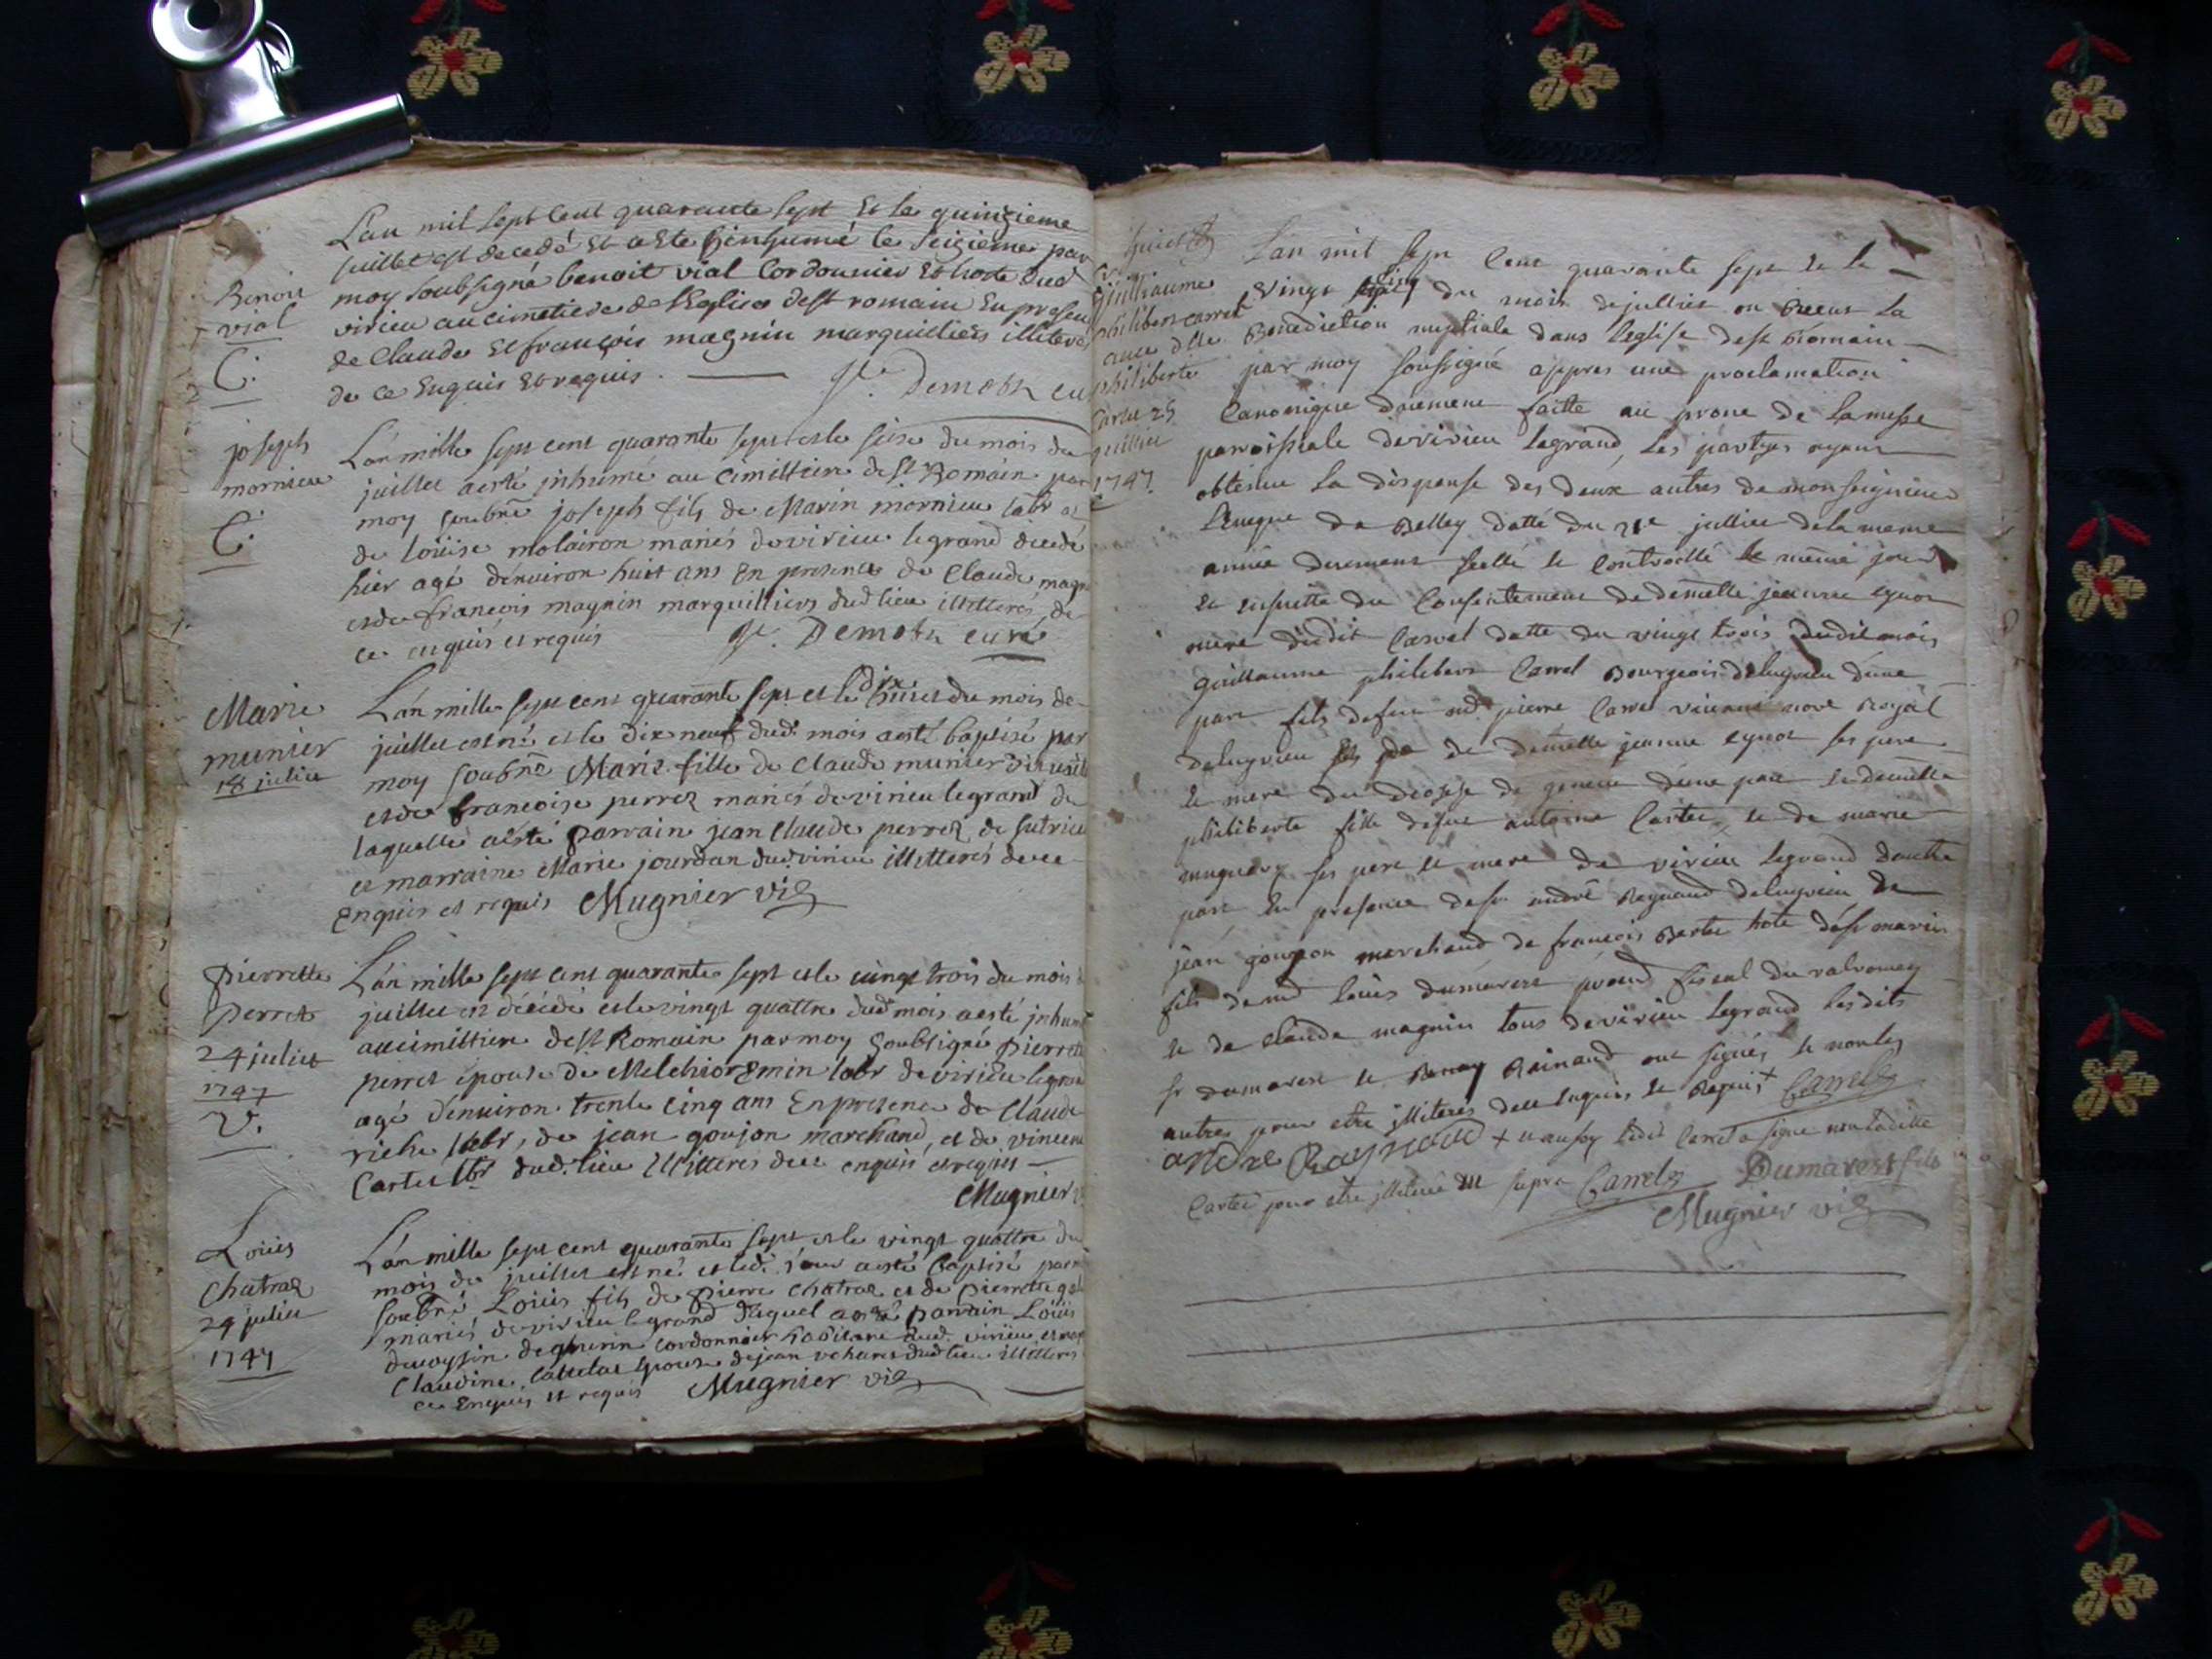 L'an mil sept cent quarante sept Et le quinzieme
juillet est decedé Et a Este Enhumé le seizieme par
moy soubsigné benoit vial Cordonnier Et hoste dud
virieu au cimetiere de l'Eglise de st romain En presen
de Claude Et françois magnin marguilliers illitere
de ce Enquis Et requis.
Demotz cu
Benoit
vial
C.
joseph
mornieu
C.
L'an mille sept cent quarante sept et le seise du mois de
juillet a esté inhumé au cimittiere de st Romain par
moy soubné joseph fils de Marin mornieu labr et
de Loüise molairon mariés de virieu le grand décedé
hier agé d'environ huit ans En presence de Claude magn
et de francois magnin marguilliers dud lieu illitterés, de
ce enquis et requis Demotz curé
Marie
munier
18 juliet
L'an mille sept cent quarante sept et le dix huict du mois de
juillet est né et le dix neuf dud. mois a esté baptisé par
moy soubné Marie fille de Claude munier
et de francoise perret mariés de virieu le grand de
laquelle a esté parrain jean Claude perret de sutrieu
et marraine Marie jourdan dud. virieu illitterés de ce
Enquis et requis Mugnier vic
Pierrette
Perret
24 juliet
1747
V.
L'an mille sept cent quarante sept et le vingt trois du mois
juillet est décédé et le vingt quattre dud mois a esté inhum
au cimittiere de st Romain par moy soubsigné Pierrete
perret épouse de Melchior Emin labr de virieu le gran
agé d'environ trente cinq ans En presence de Claude
riche labr, de jean goujon marchand, et de vincent
Carter lbr dud. lieu illitteres de ce enquis et requis
Mugnier
Loüis
Chatras
24 juliet
1747
L'an mille sept cent quarante sept et le vingt quattre du
mois de juillet est né et led. jour a esté baptisé par m
soubné Loüis fils de Pierre Chatras et de Pierrette
mariés de virieu le grand duquel a esté parrain Loüis
cordonnier habitant dud. virieu, et mar
Claudine épouse de jean dud lieu illitteres
ce Enquis et requis Mugnier vic
Guilliaume
philibert carrel
avec dlle
philiberte
Carter 25
juillet
1747
L'an mil sept Cent quarante sept et le
vingt cinq du mois de julliet on Receus la
Benediction nuptiale dans leglise de st Romain
par moy soussigné appres une proclamation
Canonique duement faitte au prone de la messe
paroissiale de virieu le grand, les partyes ayant
obtenue la dispense des deux autres de monseigneur
Leveque de Belley datté du 21e julliet de la meme
année duement scellé et Controllé le même jour
et ensuitte du Consentement de demelle jeanne
mere dudit Carrel datte du vingt trois dudit mois
guillaume philibert Carrel Bourgeois de lugrieu d'une
part fils de feu md. pierre Carrel vivant nore Royal
de lugrieu et de demelle jeanne ses pere
et mere du diocese de geneve d'une part et demelle
philiberte fille de feu antoine Carter et de marie
ses pere et mere de virieu legrand d'autre
part En presence de sr andré Reynaud de lugrieu de
jean goujon marchand de francois Berthe hote de st martin
fils de md louis dumarest procur fiscal du valromey
et de claude magnin tous de virieu legrand lesdits
sr dumarest et Reinaud ont signés et non les
autres pour etre illiterés de ce enquis, et Requis + Carrel
andre Raynaud + ledit Carrel a signe non ladille
Carter pour etre illiterée ut supra Carrel Dumarest fils
Mugnier vic